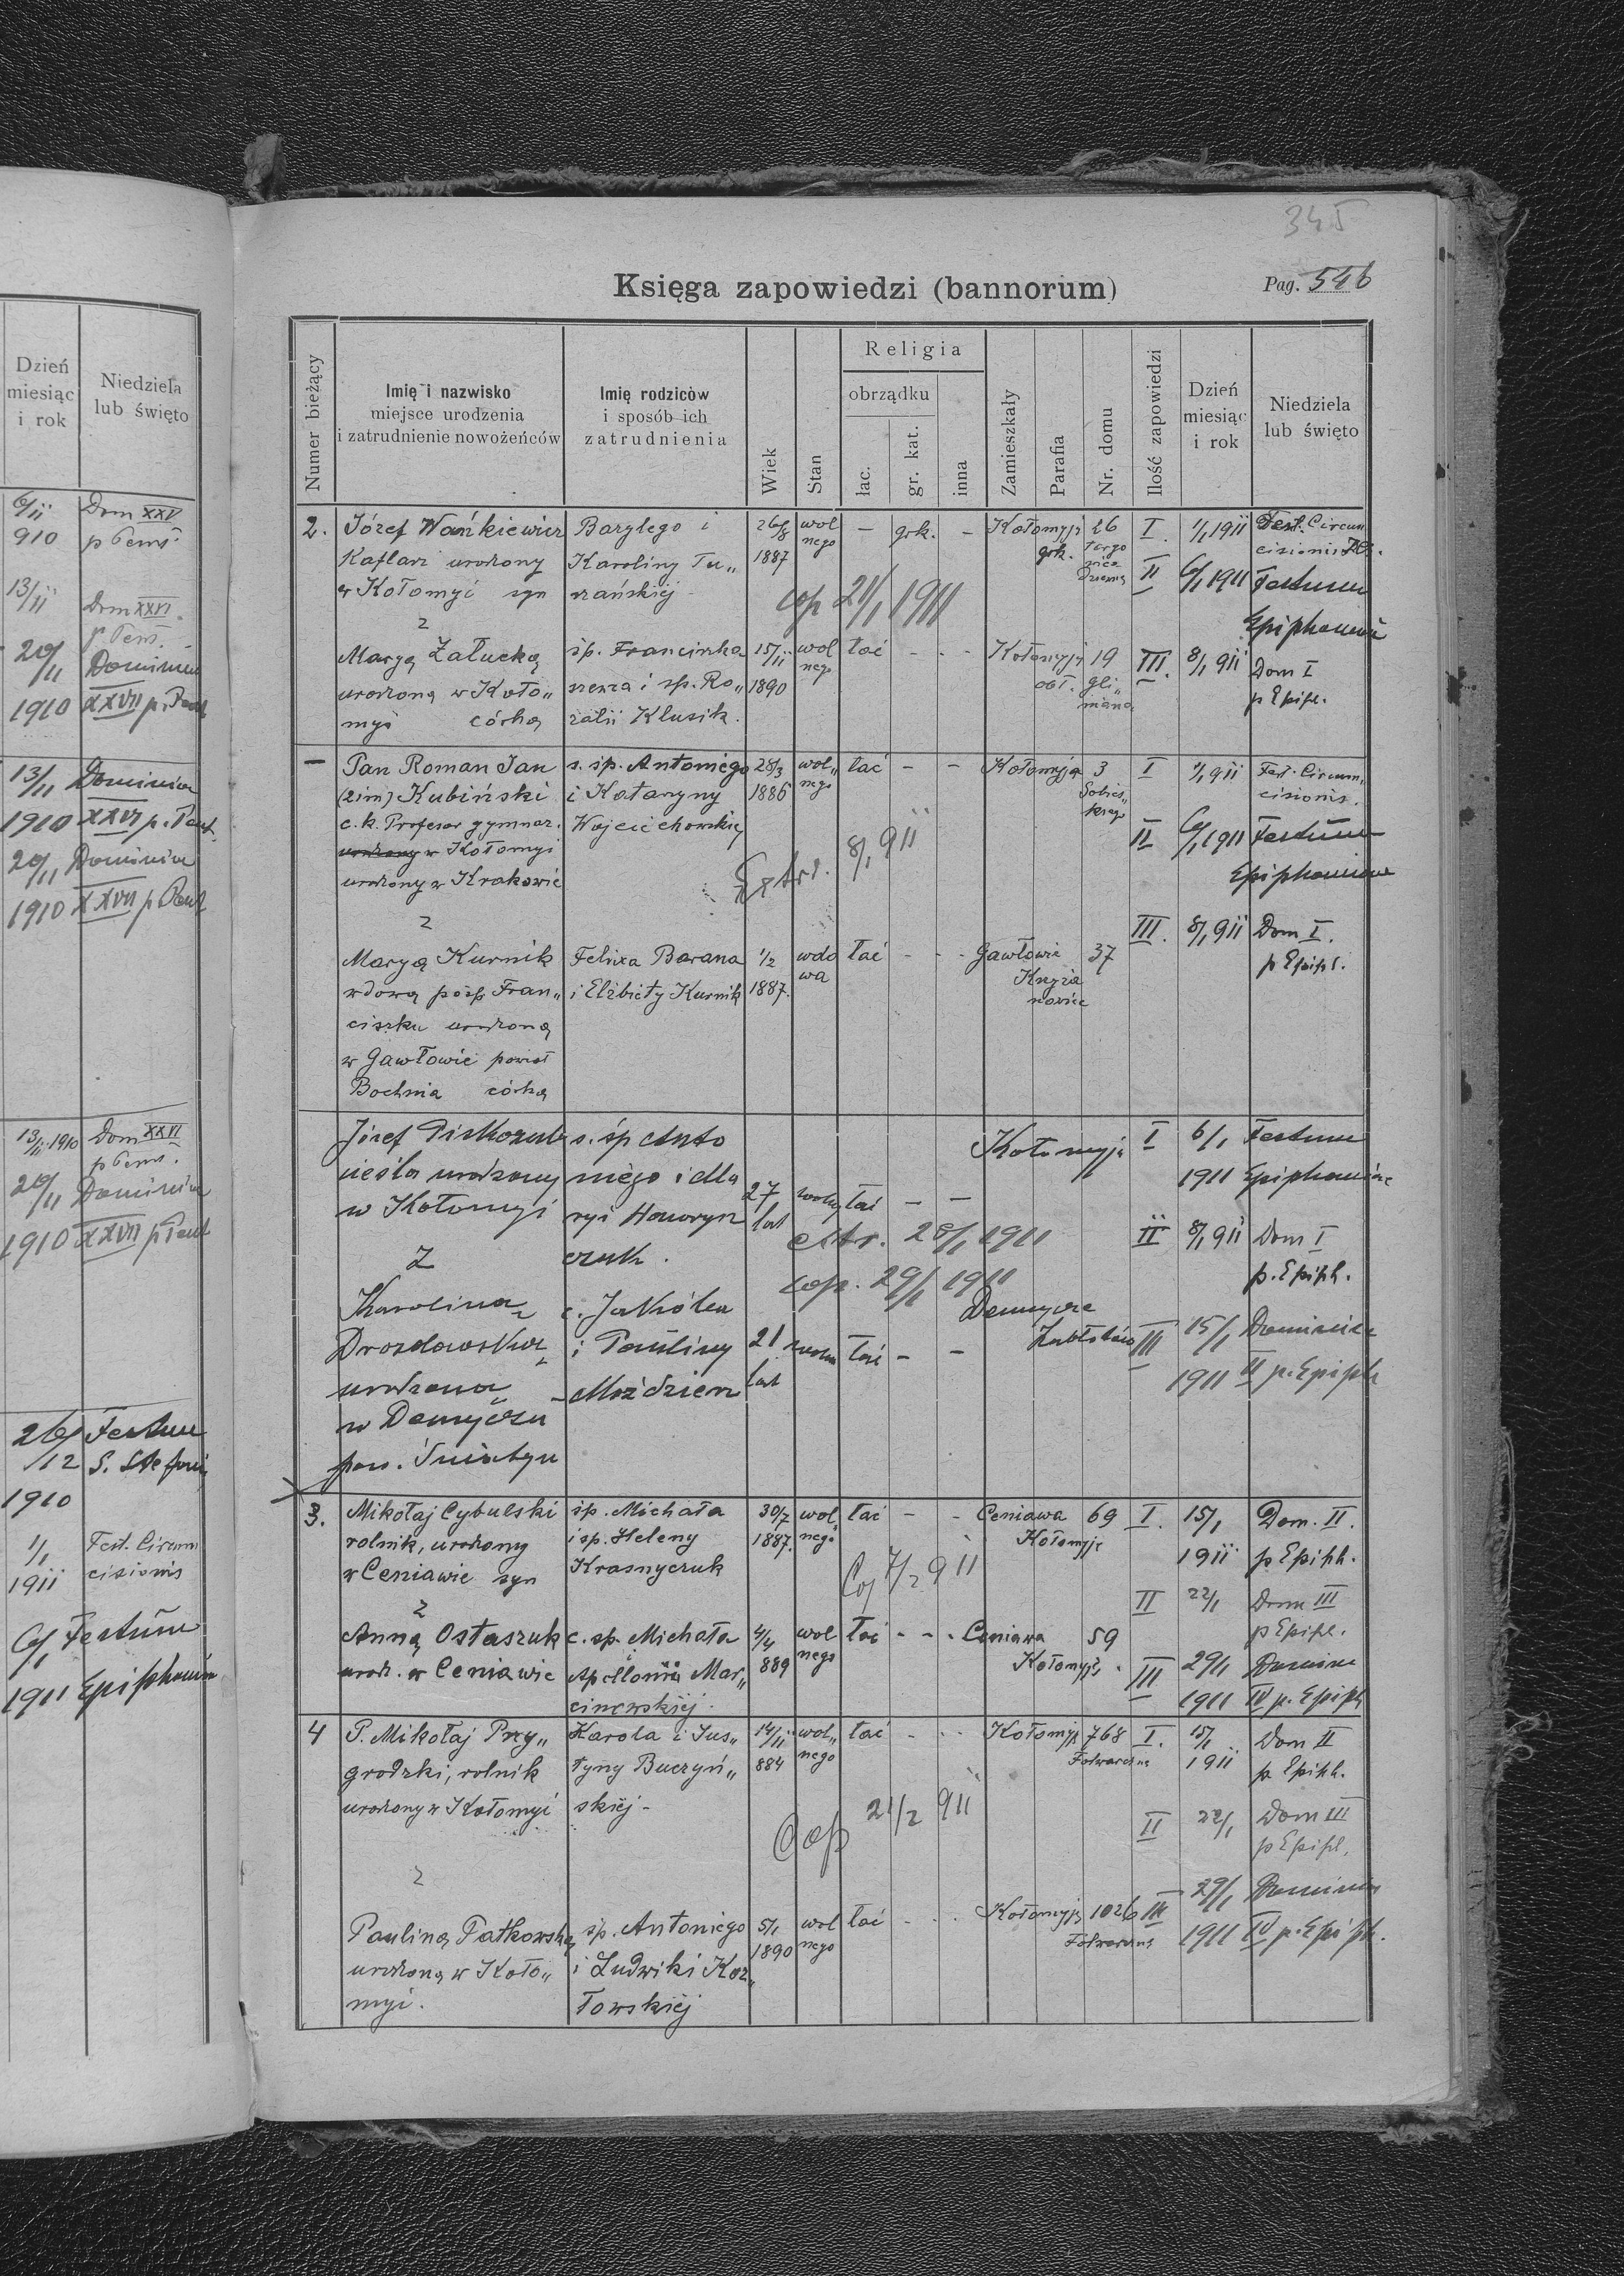 Dzień
miesiąc
i rok
Niedziela
lub święto
6/11 Dom XXV
910 p
13/11 Dom XXVI
p
20/11 Dominica
1910 XXVII p.
13/11 Dominica
1910 XXVI p.
20/11 Dominica
1910 XXVII p
13/11 1910 Dom XXVI
p
20/11 Dominica
1910 XXVII p
26/12 Festum
S.
1910
1/1 Fest. Circum
1911 cisionis
6/1 Festum
1911 Epiphaniae
345
Księga zapowiedzi (bannorum)
Pag. 546
Numer bieżący
Imię i nazwisko
miejsce urodzenia
i zatrudnienie nowożeńców
Imię rodziców
i sposób ich
zatrudnienia
Wiek
Stan
Religia
obrządku
łac.
gr. kat.
inna
Zamieszkały
Parafia
Nr. domu
Ilość zapowiedzi
Dzień
miesiąc
i rok
Niedziela
lub święto
2. Józef Wańkiewicz Barylego i 26/8 wol — grk. — Kołomyji 26 I. 1/1 1911 Fest. Circum
Kaflarz urodzony Karoliny Tu„ 1887 nego grk. cisionis
w Kołomyi syn rzańskiej II 6/1 1911 Festum
cop 21/1 1911
z Epiphaniae
Maryą Załucką śp. Franciszka 15/11 wol łać - - - Kołomyji 19 III. 8/1 911 Dom I
urodzoną w Koło„ i sp. Ro„ 1890 nego gli„ p Epiph.
myi córką zalii Klusik. miana
— Pan Roman Jan s. śp. Antoniego 28/3 wol„ łać - - Kołomyja 3 I 1/1 911 Fest. Circum„
(2im) Kubiński i Katarzyny 1886 nego Sobies„ cisionis.
c. k. Profesor gymnaz. Wojciechowskiej kiego
urodzony w Kołomyi II 6/1 1911 Festum
urodzony w Krakowie Extrd. 8/1 911 Epiphaniae
z III. 8/1 911 Dom I.
Maryą Kurnik Felixa Barana 1/2 wdo łać - - - Gawłowie 37 p Epiph.
wdową pośp Fran„ i Elżbiety Kurnik 1887. wa
ciszku urodzoną
w Gawłowie powiat
Bochnia córką
Józef s. śp Anto Kołomyja I 6/1 Festum
cieśla urodzony niego i Ma 1911 Epiphaniae
w Kołomyi ryi 27 lat wolny łać — —
z czuk. 28/1 1911 II 8/1 911 Dom I
cop. 29/1 1911 p. Epiph.
Karolina c. Jakóba
Drozdowska i Pauliny 21 łać — — III 15/1 Dominica
urodzona lat 1911 II p. Epiph
w
pow. Śniatyn
3. Mikołaj Cybulski śp. Michała 30/7 wol łać - - Ceniawa 69 I. 15/1 Dom. II.
rolnik, urodzony i sp. Heleny 1887. nego Kołomyje 1911 p Epiph.
w Ceniawie syn Krasnyczuk 7/2 911
z II 22/1 Dom III
Anną Ostaszuk c. sp. Michała 4/4 wol łać - - - Ceniawa 59 p Epiph.
urodz. w Ceniawie Apollonii Mar„ 889 nego Kołomyji. III 29/1 Dominica
cinowskiej. 1911 IV p. Epiph
4 P. Mikołaj Przy„ Karola i Jus„ 14/11 wol„ łać - - - Kołomyji 768 I. 15/1 Dom II
grodzki, rolnik tyny Buczyń„ 884 nego Folwarczna 1911 p Epiph.
urodzony w Kołomyi skiej - Cop 21/2 911 II 22/1 Dom III
p Epiph.
z 29/1 Dominica
Pauliną Patkowską śp. Antoniego 5/1 wol łać - - - Kołomyji 1026 III 1911 IV p. Epiph.
urodzoną w Koło„ i Ludwiki Koz„ 1890 nego Folwarczna
myi. łowskiej